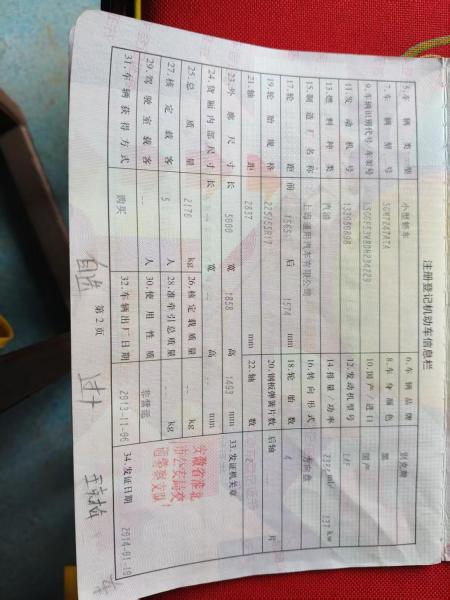 注册登记机动车信息栏
5.车辆类型 小型轿车 6.车辆品牌 别克牌
7.车辆型号 SGM7247ATA 8.车身颜色 黑
9.车辆识别代号/车架号 10.国产/进口 国产
11.发动机号 12.发动机型号 LAF
13.燃料种类 汽油 14.排量/功率 ml 137 kw
15.制造厂名称 上海通用汽车有限公司 16.转向形式 方向盘
17.轮距 前 1565 后 1574 mm 18.轮胎数 4
19.轮胎规格 225/55R17 20.钢板弹簧片数 后轴 片
21.轴距 2837 mm 22.轴数 2
23.外廓尺寸 长 5000 宽 1858 高 1493 mm 33.发证机关章
24.货厢内部尺寸 长 宽 高 mm
25.总质量 2170 kg 26.核定载质量 kg
27.核定载客 5 人 28.准牵引总质量 kg
29.驾驶室载客 人 30.使用性质 非营运
31.车辆获得方式 购买 32.车辆出厂日期 2013-11-06 34.发证日期 2014-01-10
安徽省淮北
市公安局交
通警察支队
第2页